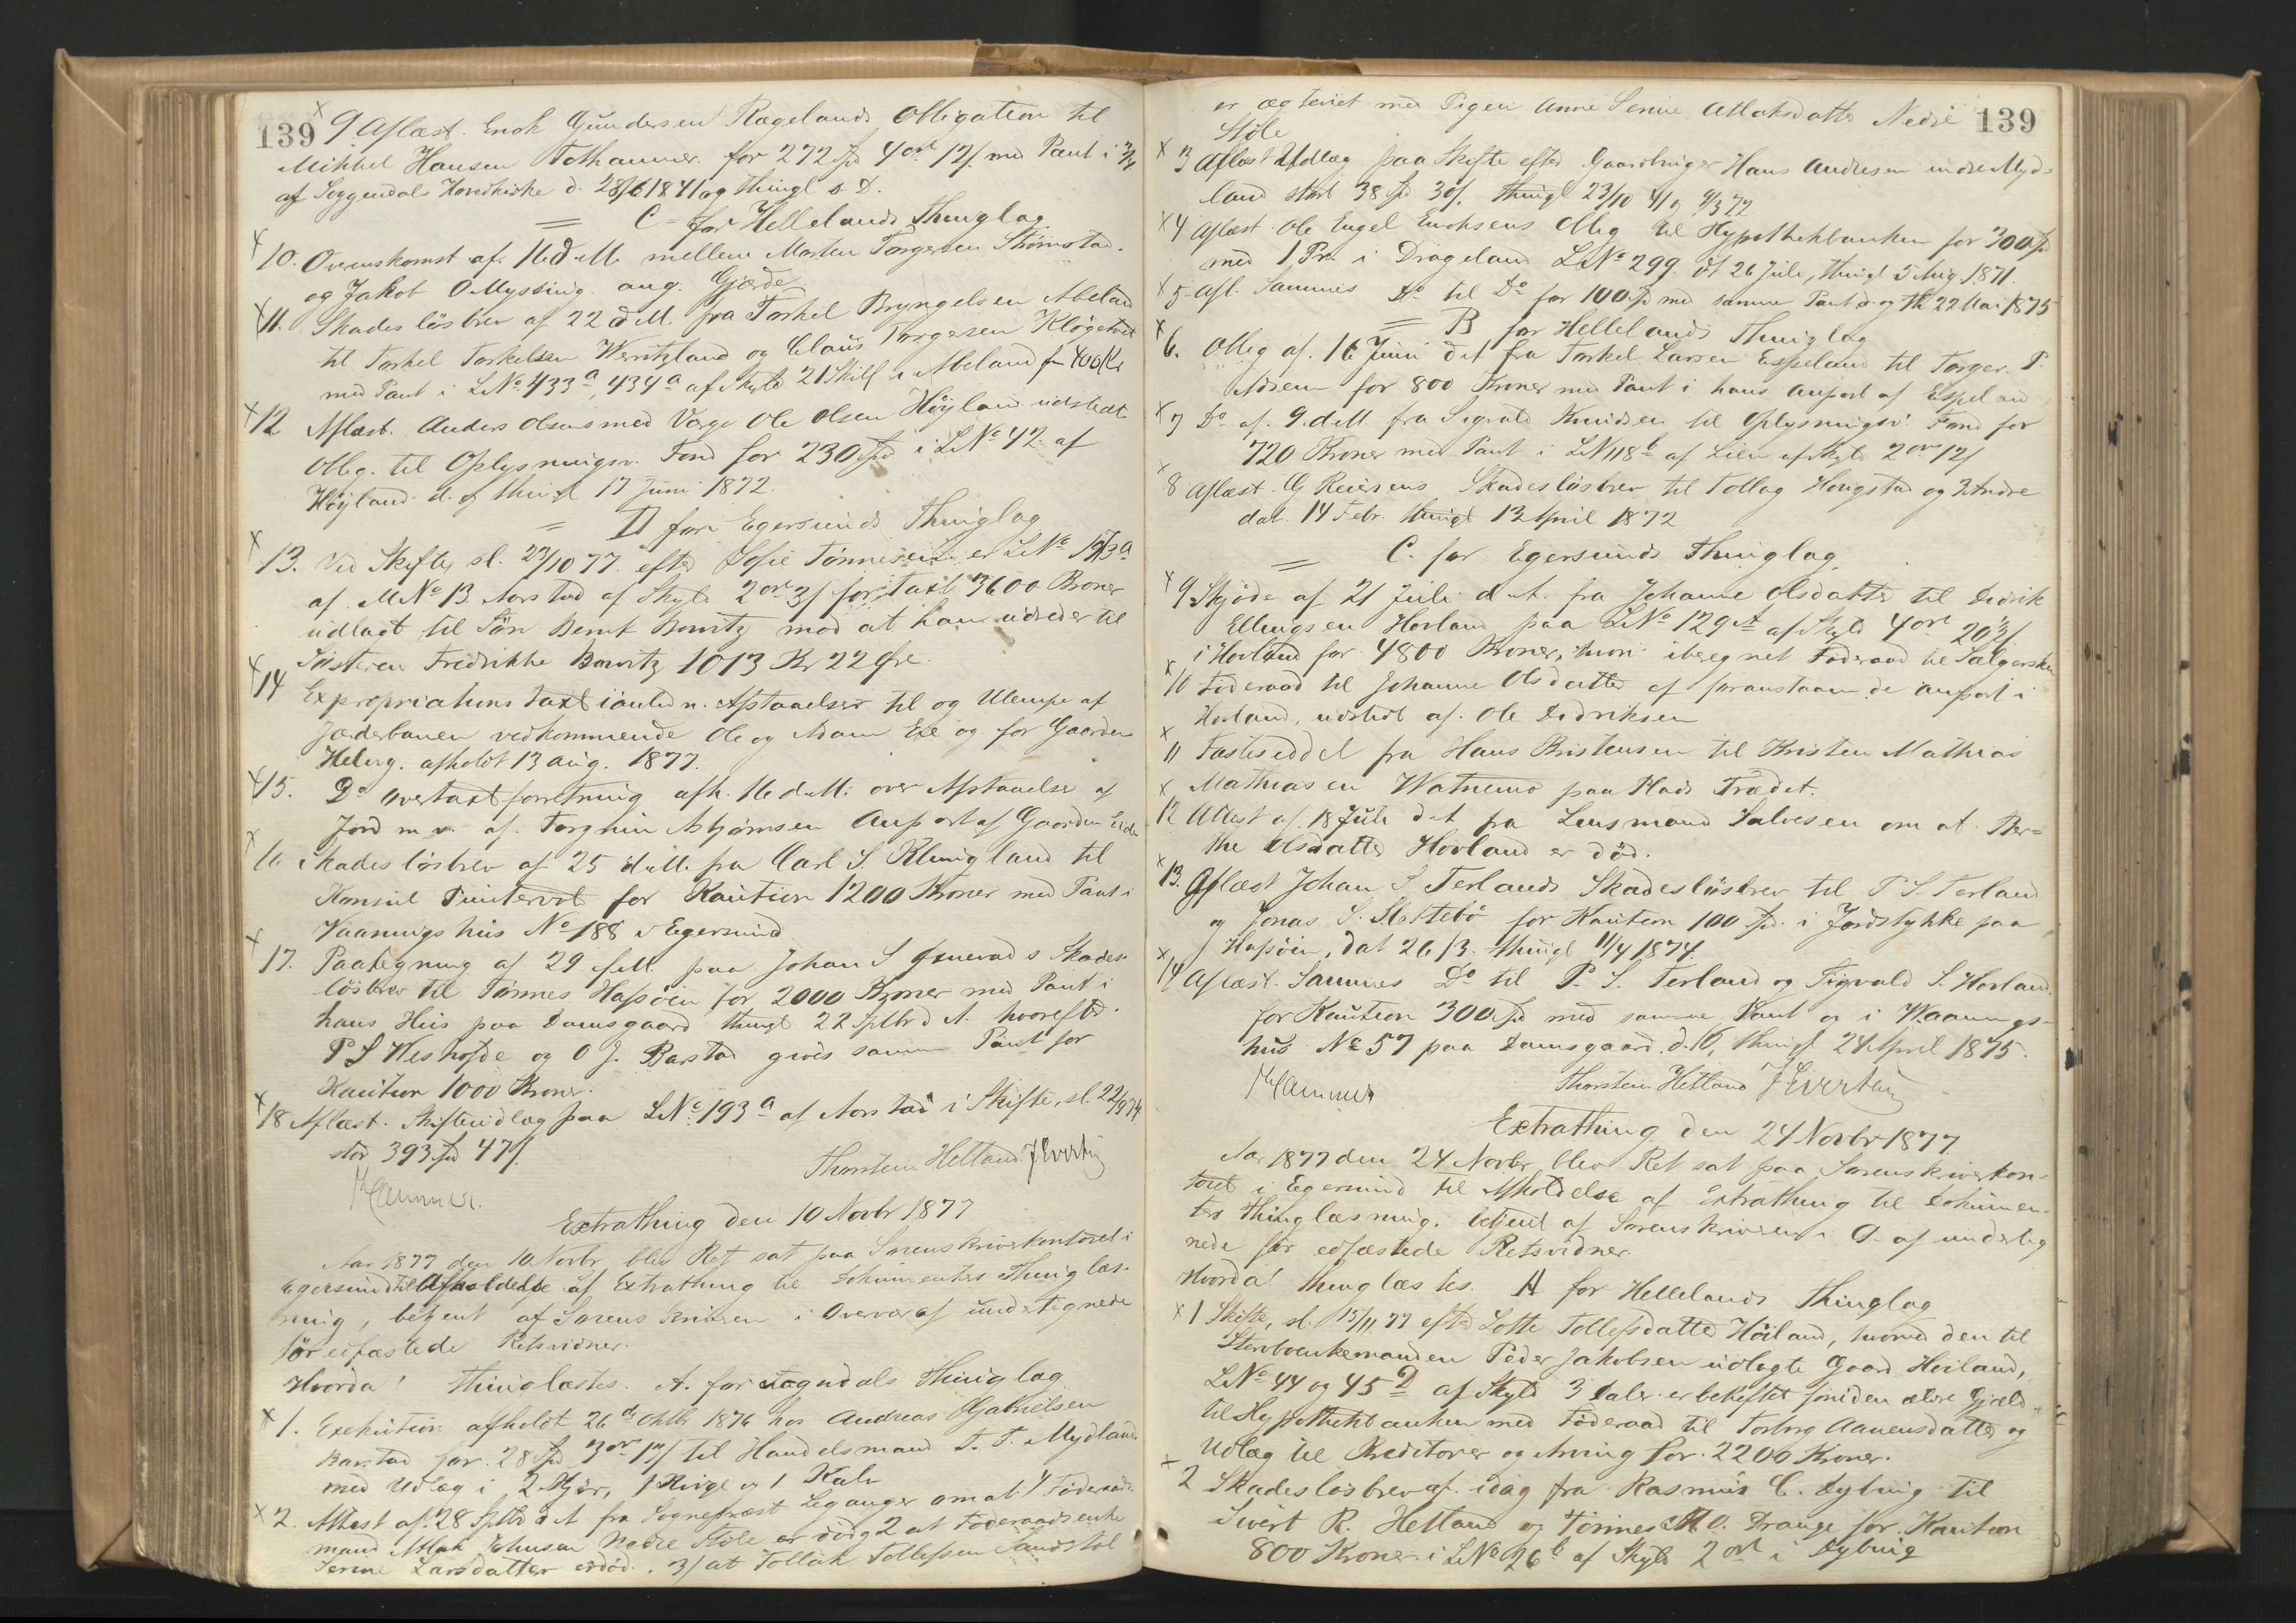 139 9 Aflæst. Enok Gundersen Rægelands Obligation til
Mikkel Hansen Tothammer for 272 Spd 4ort 12/ med Pant i
af Soggendals Hovedkirke d. 28/6 1841 og thingl s. D.
= C for Hellelands Thinglag
x 10. Overenskomst af 16 d M. mellem Morten Torgersen Strømstad
og Jakob O Myssing ang. Gjærde
x 11. Skadesløsbrev af 22 d M. fra Torkel Bryngelsen Abeland
til Torkel Torkelsen Weritzland og Claus Torgersen Kløgetvet
med Pant i LNo 433a, 434a af Skyld 21 Skill i Abeland for 400 Kr
x 12 Aflæst. Anders Olsens med Værge Ole Olsen Höyland udstedt
Oblig. til Oplysningsv. Fond for 230 Spd i LNo 42 af
Höyland d. og thingl 17 Juni 1872.
= D for Egersunds Thinglag
x 13. Ved Skifte, sl. 29/10 77. efter Sofie Tønnesen er LNo 193a
af MNo 13 Aarstad af Skyld 2 ort 3/ for taxt 3600 Kroner
udlagt til Søn Bernt Bowitz mod at han udreder til
Søsteren Fredrikke Bowitz 1013 Kr 22 Øre.
x 14 Expropriations taxt i anledn. Afstaaelser til og Ulempe af
Jæderbanen vedkommende Ole og Adam Eie og for Gaarden
Helvig. afholdt 13 Aug. 1877.
x 15. Do Overtaxtforretning afh. 16 d M. over Afstaaelse af
Jord m. v. af Torgrim Asbjørnsen Anpart af Gaarden Eide
x 16 Skadesløsbrev af 25 d M. fra Carl S Klungland til
Konsul Puntervol for Kaution 1200 Kroner med Pant i
Vaaningshus No 188 i Egersund
x 17. Paategning af 29 f. M. paa Johan S Gruevads Skades-
løsbrev til Tønnes Hafsöen for 2000 Kroner med Pant i
hans Hus paa Damsgaard thingl 22 Sptbr d A. hvorefter
P S Weshofde og O J. Barstad gives samme Pant for
Kaution 1000 Kroner.
x 18 Aflæst. Skifteudlæg paa LNo 193a af Aarstad i Skifte, sl. 22/9 74
stor 393 Spd 47/
Thorstein Hetland J Evertsen
Hammer.
Extrathing den 10 Novbr 1877
Aar 1877 den 10. Novbr. blev Ret sat paa Sorenskriverkontoret i
Egersund til Afholdelse af Extrathing til Dokumenters Thinglæs-
ning, betjent af Sorenskriveren i Overvær af undertegnede
før edfæstede Retsvidner.
Hvorda! thinglæstes. A. for Sogndals Thinglag
x 1. Exekution afholdt 26de Oktbr 1876 hos Andreas Gabrielsen
Barstad for 28 Spd 3ort 17/ til Handelsmand T. T. Mydland
med Udlæg i 2 Kjör, 1 Kvige og 1 Kalv
x 2. Attest af 28 Sptbr d A fra Sogneprest Leganger om at 1 Föderaads-
mand Atlak Johnsen Nedre Støle er død, 2 at Föderaadsenke
Serine Larsdatter er død. 3/ at Tollak Tollefsen Sandstöl
er ægteviet med Pigen Anne Serine Atlaksdatter Nedre 139
Støle
x 3 Aflæst Udlæg paa Skifte efter Gaardbruger Hans Andresen indre Myd-
land stort 38 Spd 30/. thingl 23/10 71 og 9/3 72
x 4 Aflæst Ole Engel Enoksens Oblig til Hypothekbanken for 300 Spd
med 1 Pr. i Drageland LNo 299. dt 26 Juli, thingl 5 Aug. 1871.
x 5. Afl. Sammes Do til Do for 100 Spd med samme Pant d. og th. 22 Mai 1875
= B for Hellelands Thinglag
x 6. Oblig af 16 Juni d A fra Torkel Larsen Espeland til Torger P.
Adsem for 800 Kroner med Pant i hans Anpart af Espeland
x 7 Do af 9. d M. fra Sigvald Knudsen til Oplysningsv. Fond for
720 Kroner med Pant i LNo 118b af Lien af Skyld 2 ort 12/
x 8 Aflæst. G Reiersens Skadesløsbrev til Tollag Hougstad og 3 Andre
dat. 14 Febr. thingl 13 April 1872
= C. for Egersunds Thinglag
x 9 Skjøde af 21 Juli d. A. fra Johanne Olsdatter til Didrik
Ellingsen Hovland paa LNo 129A af Skyld 4 ort 20½/
i Hovland for 4800 Kroner, hvori iberegnet Föderaad til Sælgersken
x 10 Föderaad til Johanne Olsdatter af foranstaaende Anpart i
Hovland, udstedt af Ole Didriksen
x 11 Fæsteseddel fra Hans Kristensen til Kristen Mathias
Mathiasen Watnemo paa Plads Trædet.
x 12 Attest af 18 Juli d A fra Lensmand Salvesen om at Ber-
the Olsdatter Hovland er død.
x 13. Aflæst Johan S. Terlands Skadesløsbrev til P. S. Terland
og Jonas S. Slettebö for Kaution 100 Spd. i Jordstykke paa
Hafsöen, dat 26/3. thingl 11/4 1874.
x 14 Aflæst. Sammes Do til P. S. Terland og Sigvald S. Hovland
for Kaution 300 Spd med samme Pant og i Waanings-
hus No 57 paa Damsgaard d. 16, thingl 24 April 1875.
Hammer Thorstein Hetland J Evertsen
Extrathing den 24 Novbr 1877
Aar 1877 den 24 Novbr. blev Ret sat paa Sorenskriverkon-
toret i Egersund til Afholdelse af Extrathing til Dokumen-
ters Thinglæsning. betjent af Sorenskriveren i O. af underteg
nede før edfæstede Retsvidner
Hvorda! thinglæstes. A for Hellelands Thinglag
x 1 Skifte, sl. 15/11 77 efter Lotte Tollefsdatter Höiland, hvorved den til
Stervboenkemanden Peder Jakobsen udlagte Gaard Höiland,
LNo 44 og 45D af Skyld 3 Daler er beheftet foruden ældre Gjæld
til Hypothekbanken med Föderaad til Torborg Aanensdatter og
Udlæg til Kreditorer og Arving for 2200 Kroner.
x 2 Skadesløsbrev af idag fra Rasmus C. Dybing til
Sivert R. Hetland og Tönnes M O. Drange for Kaution
800 Kroner i LNo 26b af Skyld 2 ort i Dybing